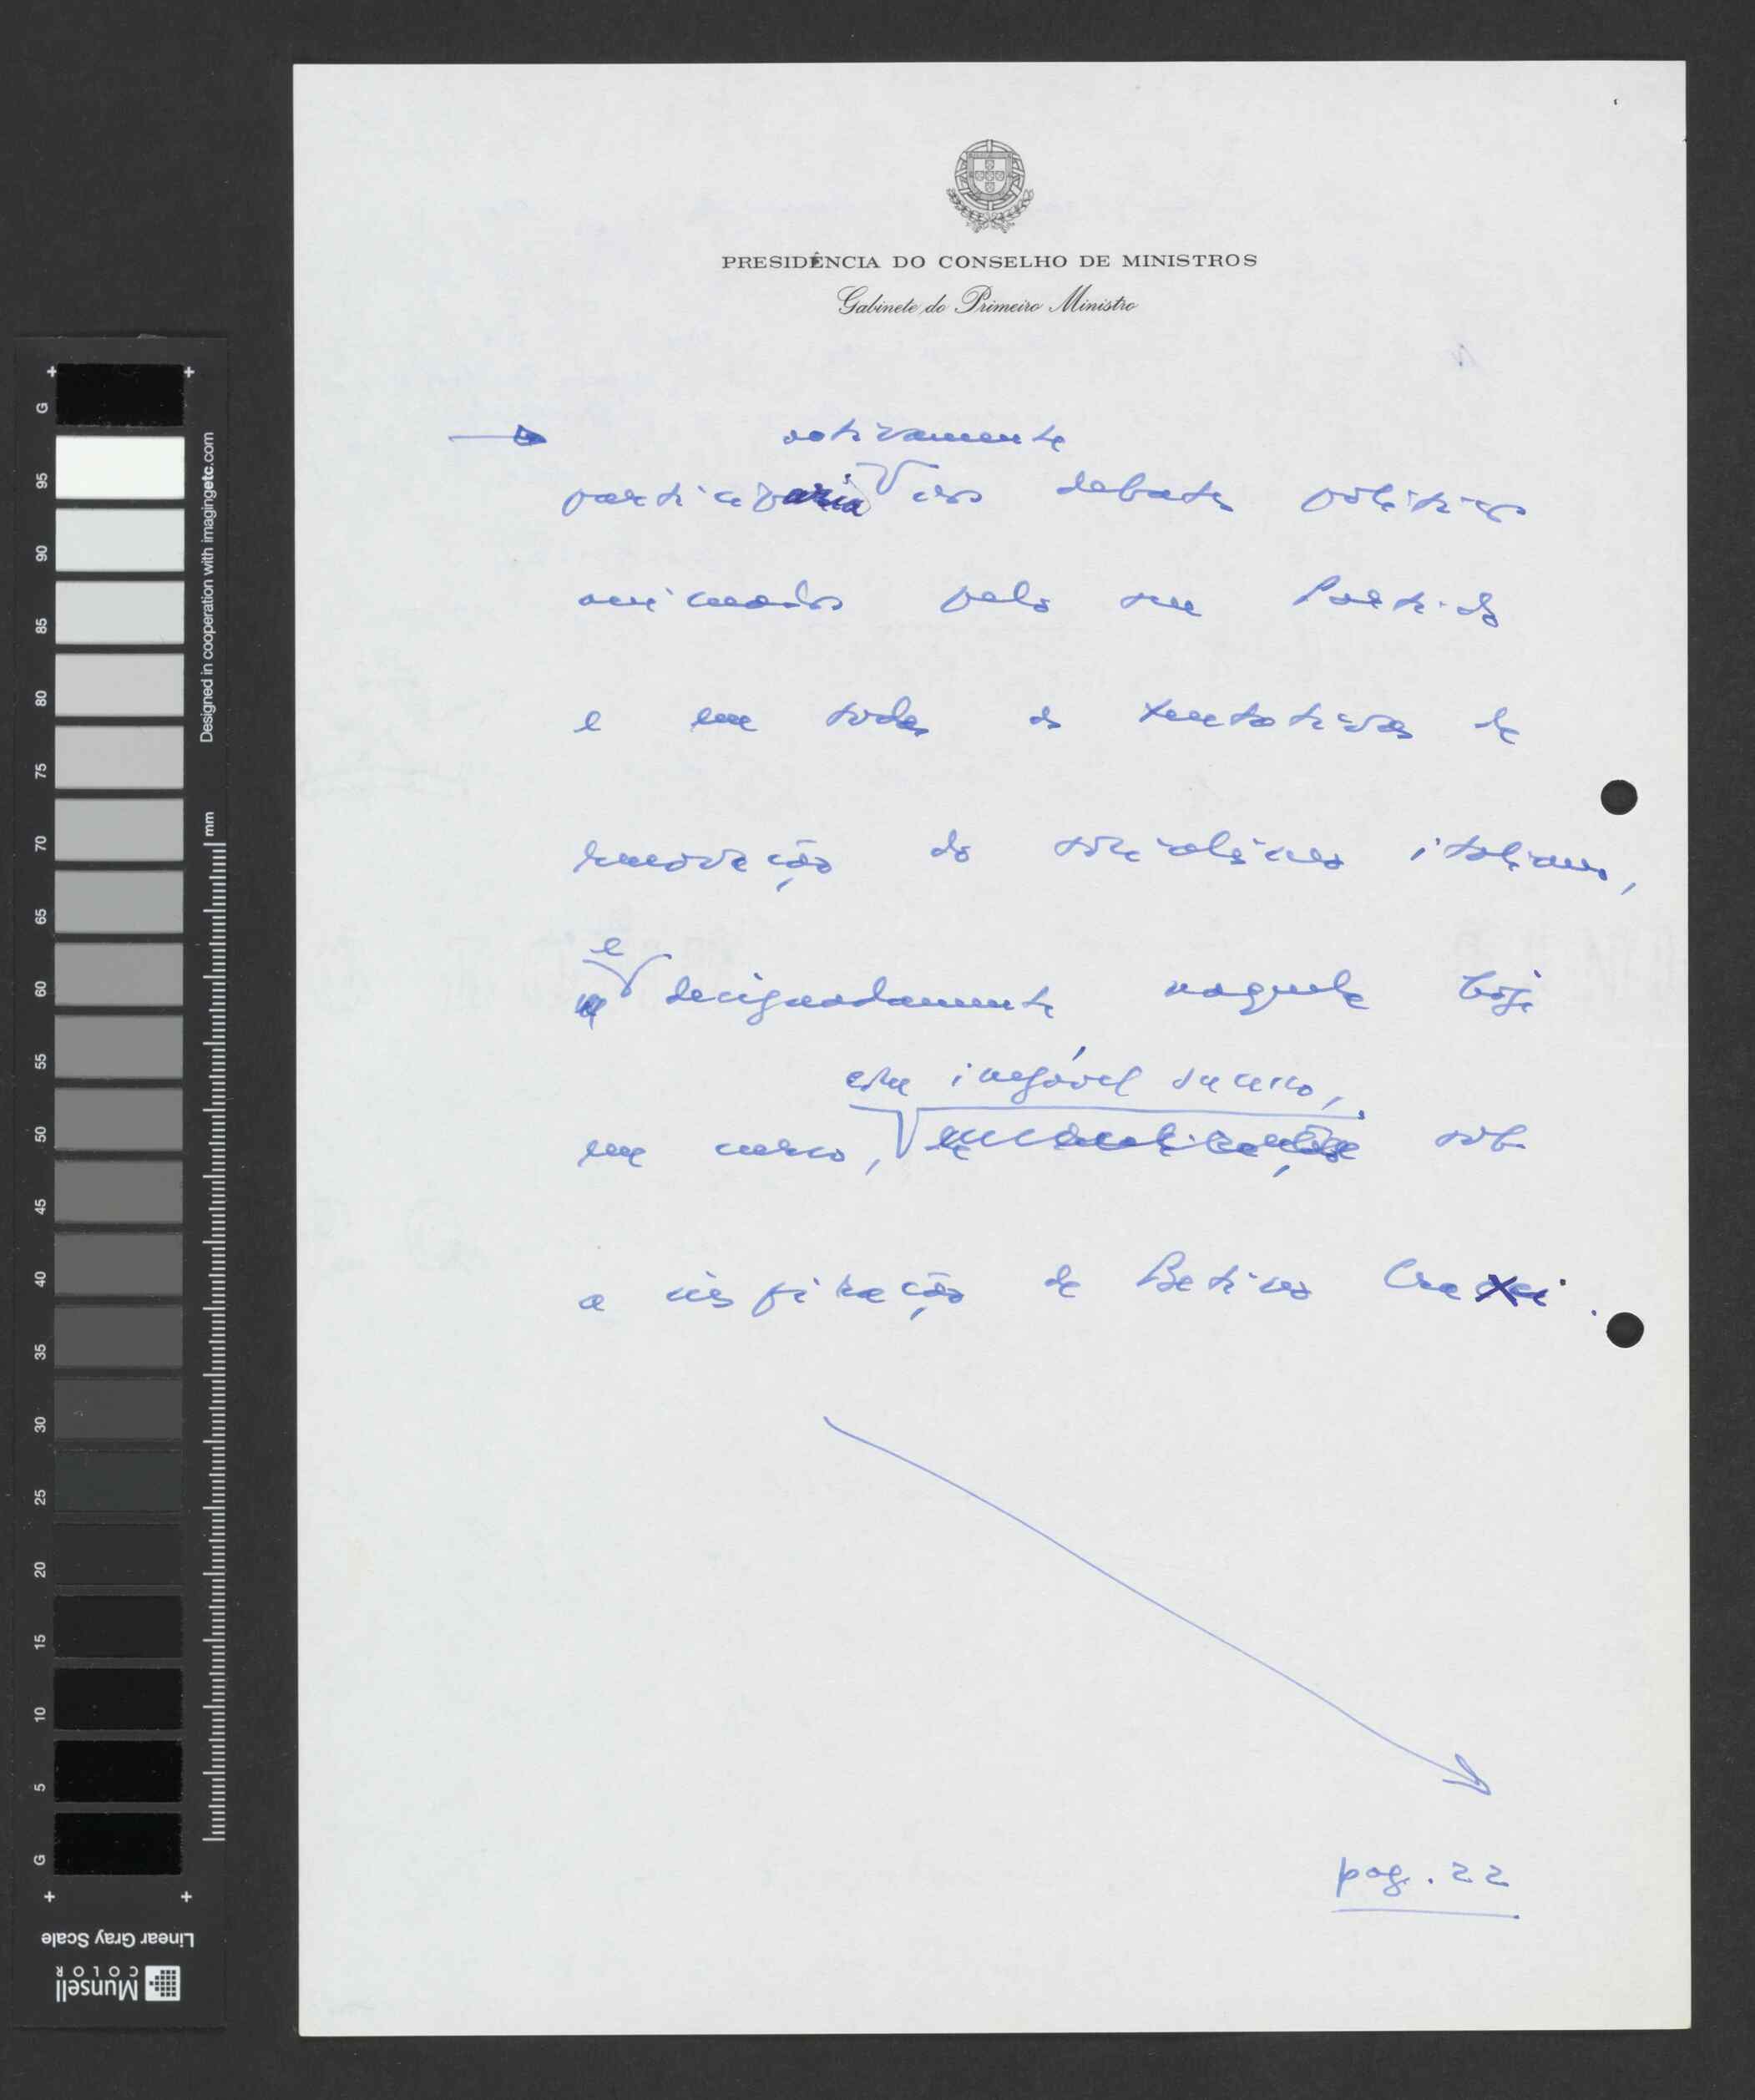 PRESIDÊNCIA DO CONSELHO DE MINISTROS
Gabinete do Primeiro Ministro
activamente
participaria nos debates políticos
animados pelo seu Partido
e em todas as tentativas de
renovação do socialismo italiano,
e
designadamente naquela hoje
com inegável sucesso,
em curso, sob
a inspiração de Betino Craxi.
pag. 22
G
95
90
85
80
75
70
65
60
55
50
45
40
35
30
25
20
15
10
5
G
Designed in cooperation with imagingetc.com
mm
Linear Gray Scale
Munsell
COLOR